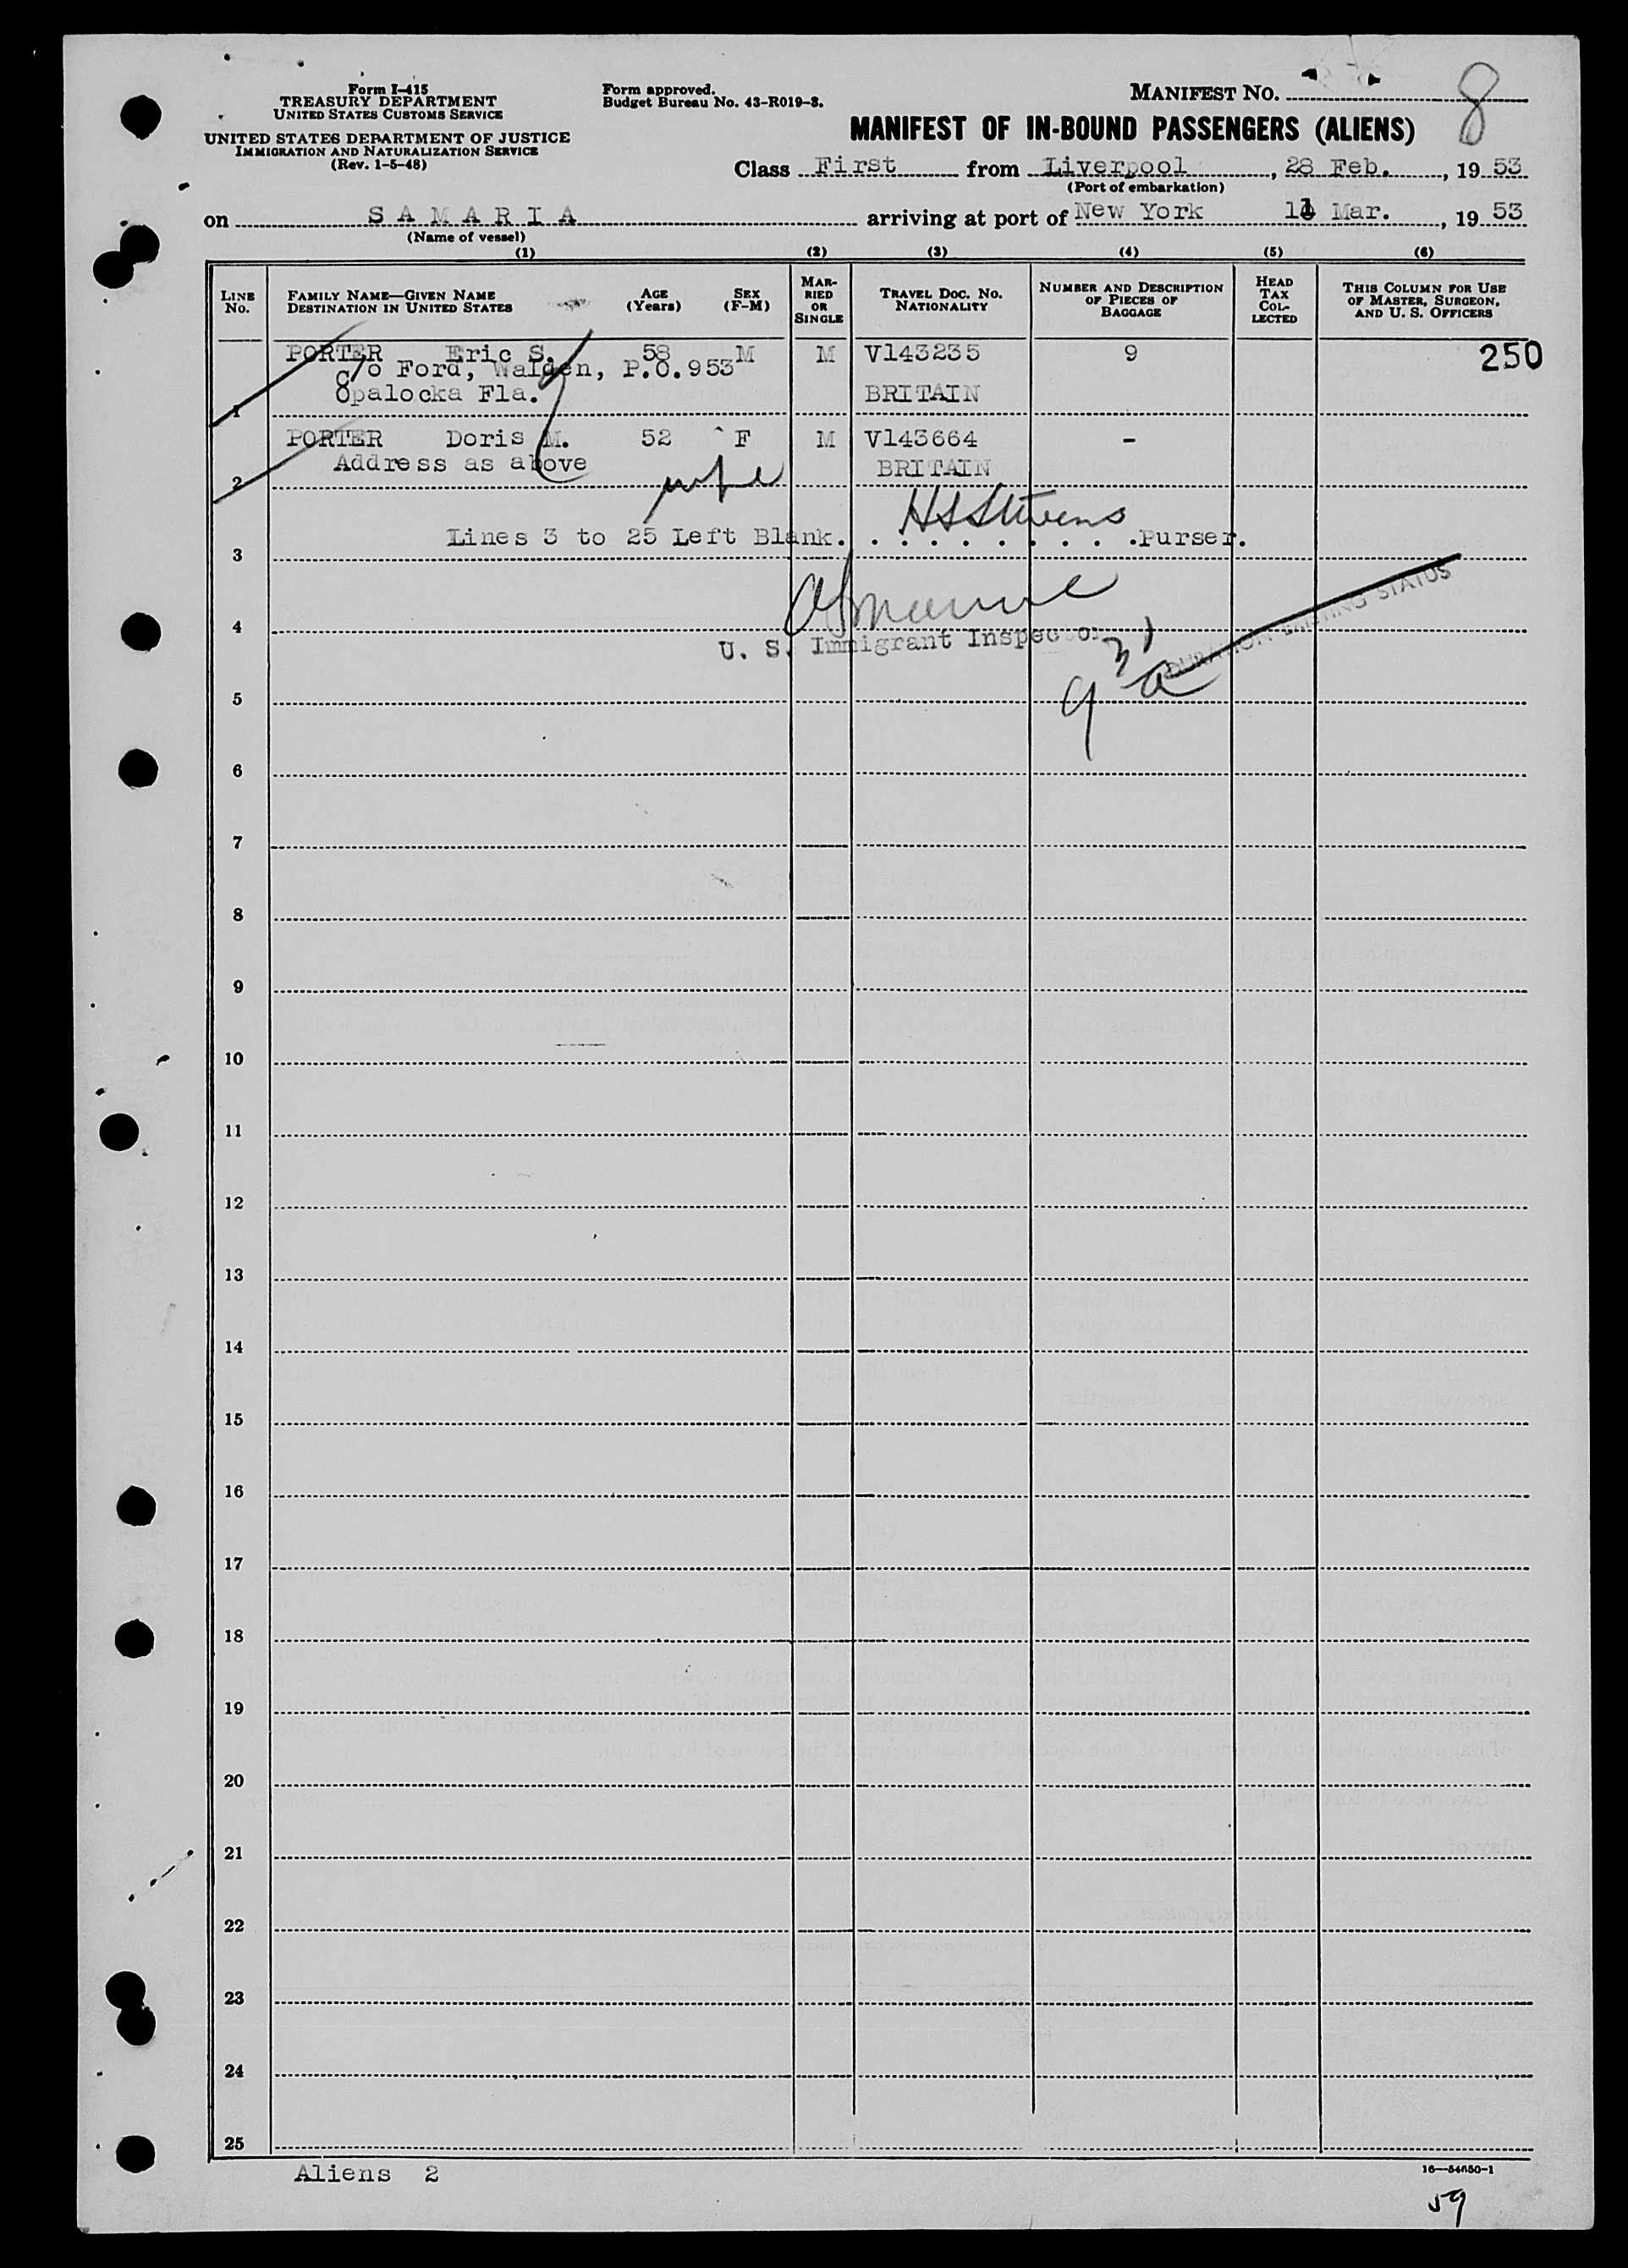 Form I-415
TREASURY DEPARTMENT
UNITED STATES CUSTOMS SERVICE
UNITED STATES DEPARTMENT OF JUSTICE
IMMIGRATION AND NATURALIZATION SERVICE
(Rev. 1-5-48)
Form approved.
Budget Bureau No. 43-R019-3.
MANIFEST NO.
8
MANIFEST OF IN-BOUND PASSENGERS (ALIENS)
Class First from Liverpool, 28 Feb., 1953
(Port of embarkation)
on SAMARIA arriving at port of New York 11 Mar., 1953
(Name of vessel)
(1) (2) (3) (4) (5) (6)
LINE No. FAMILY NAME—GIVEN NAME DESTINATION IN UNITED STATES AGE (Years) SEX (F-M) MARRIED OR SINGLE TRAVEL DOC. NO. NATIONALITY NUMBER AND DESCRIPTION OF PIECES OF BAGGAGE HEAD TAX COLLECTED THIS COLUMN FOR USE OF MASTER, SURGEON, AND U. S. OFFICERS
PORTER Eric S. 58 M M V143235 9 250
c/o Ford, Walden, P.O.953
1 Opalocka Fla. BRITAIN
PORTER Doris M. 52 F M V143664 -
2 Address as above BRITAIN
wife
HSStevens
Lines 3 to 25 Left Blank. . . . . . . . . . .Purser.
3
4
U. S. Immigrant Inspector
DURATION EXISTING STATUS
5
6
7
8
9
10
11
12
13
14
15
16
17
18
19
20
21
22
23
24
25
Aliens 2
16—54650-1
59